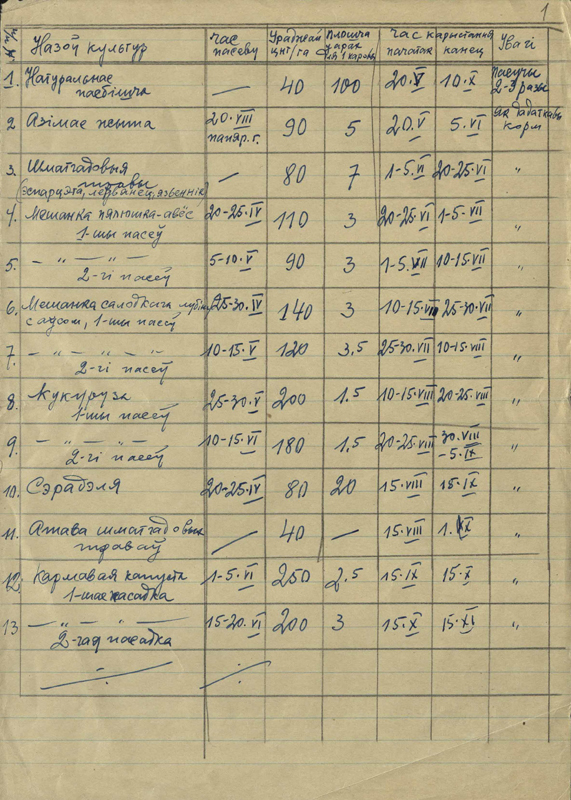 1
№ п/п Назоў культур Час пасеву Ураджай цнт/га Плошча у арах на 1 карову Час карыстання пачатак канец Увагі
1. Натуральнае паебішча — 40 100 20.V 10.X Паеучы 2-3 разы
2 Азімае жыта 20.VIII папяр. г. 90 5 20.V 5.VI як дадатковы корм
3. Шматгадовыя травы (эспарцэта, лядванец, язвеннік) — 80 7 1-5.VI 20-25.VI "
4. Мешанка пялюшка-авёс 1-шы пасеў 20-25.IV 110 3 20-25.VI 1-5.VII "
5. — " — " — 2-гі пасеў 5-10.V 90 3 1-5.VII 10-15.VII "
6. Мешанка салодкага лубіну с аўсом, 1-шы пасеў 25-30.IV 140 3 10-15.VII 25-30.VII "
7. — " — " — " — 2-гі пасеў 10-15.V 120 3,5 25-30.VII 10-15.VIII "
8. Кукуруза 1-шы пасеў 25-30.V 200 1.5 10-15.VIII 20-25.VIII "
9. — " — " — 2-гі пасеў 10-15.VI 180 1,5 20-25.VIII 30.VIII -5.IX "
10. Сэрадэля 20-25.IV 80 20 15.VIII 15.IX "
11. Атава шматгадовых траваў — 40 — 15.VIII 1.IX "
12. Кармавая капуста 1-шая пасадка 1-5.VI 250 2,5 15.IX 15.X "
13 — " — " — 2-гая пасадка 15-20.VI 200 3 15.X 15.XI "